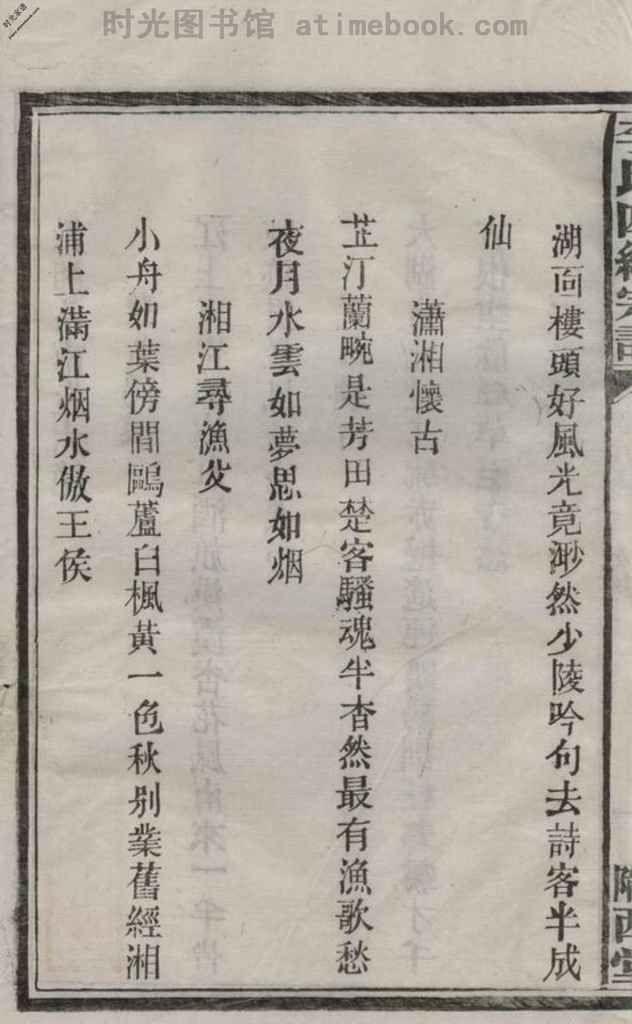 时光图书馆 atimebook.com
李氏四續宗譜
隴西堂
湖面樓頭好風光竟渺然少陵吟句去詩客半成
仙
瀟湘懷古
芷汀蘭畹是芳田楚客騷魂半杳然最有漁歌愁
夜月水雲如夢思如烟
湘江尋漁父
小舟如葉傍閒鷗蘆白楓黃一色秋別業舊經湘
浦上滿江烟水傲王侯